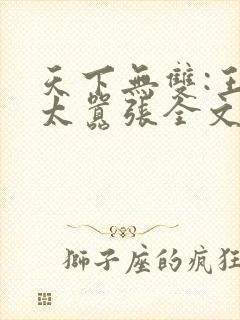 天下無雙:王
太囂張全文
獅子座的瘋狂